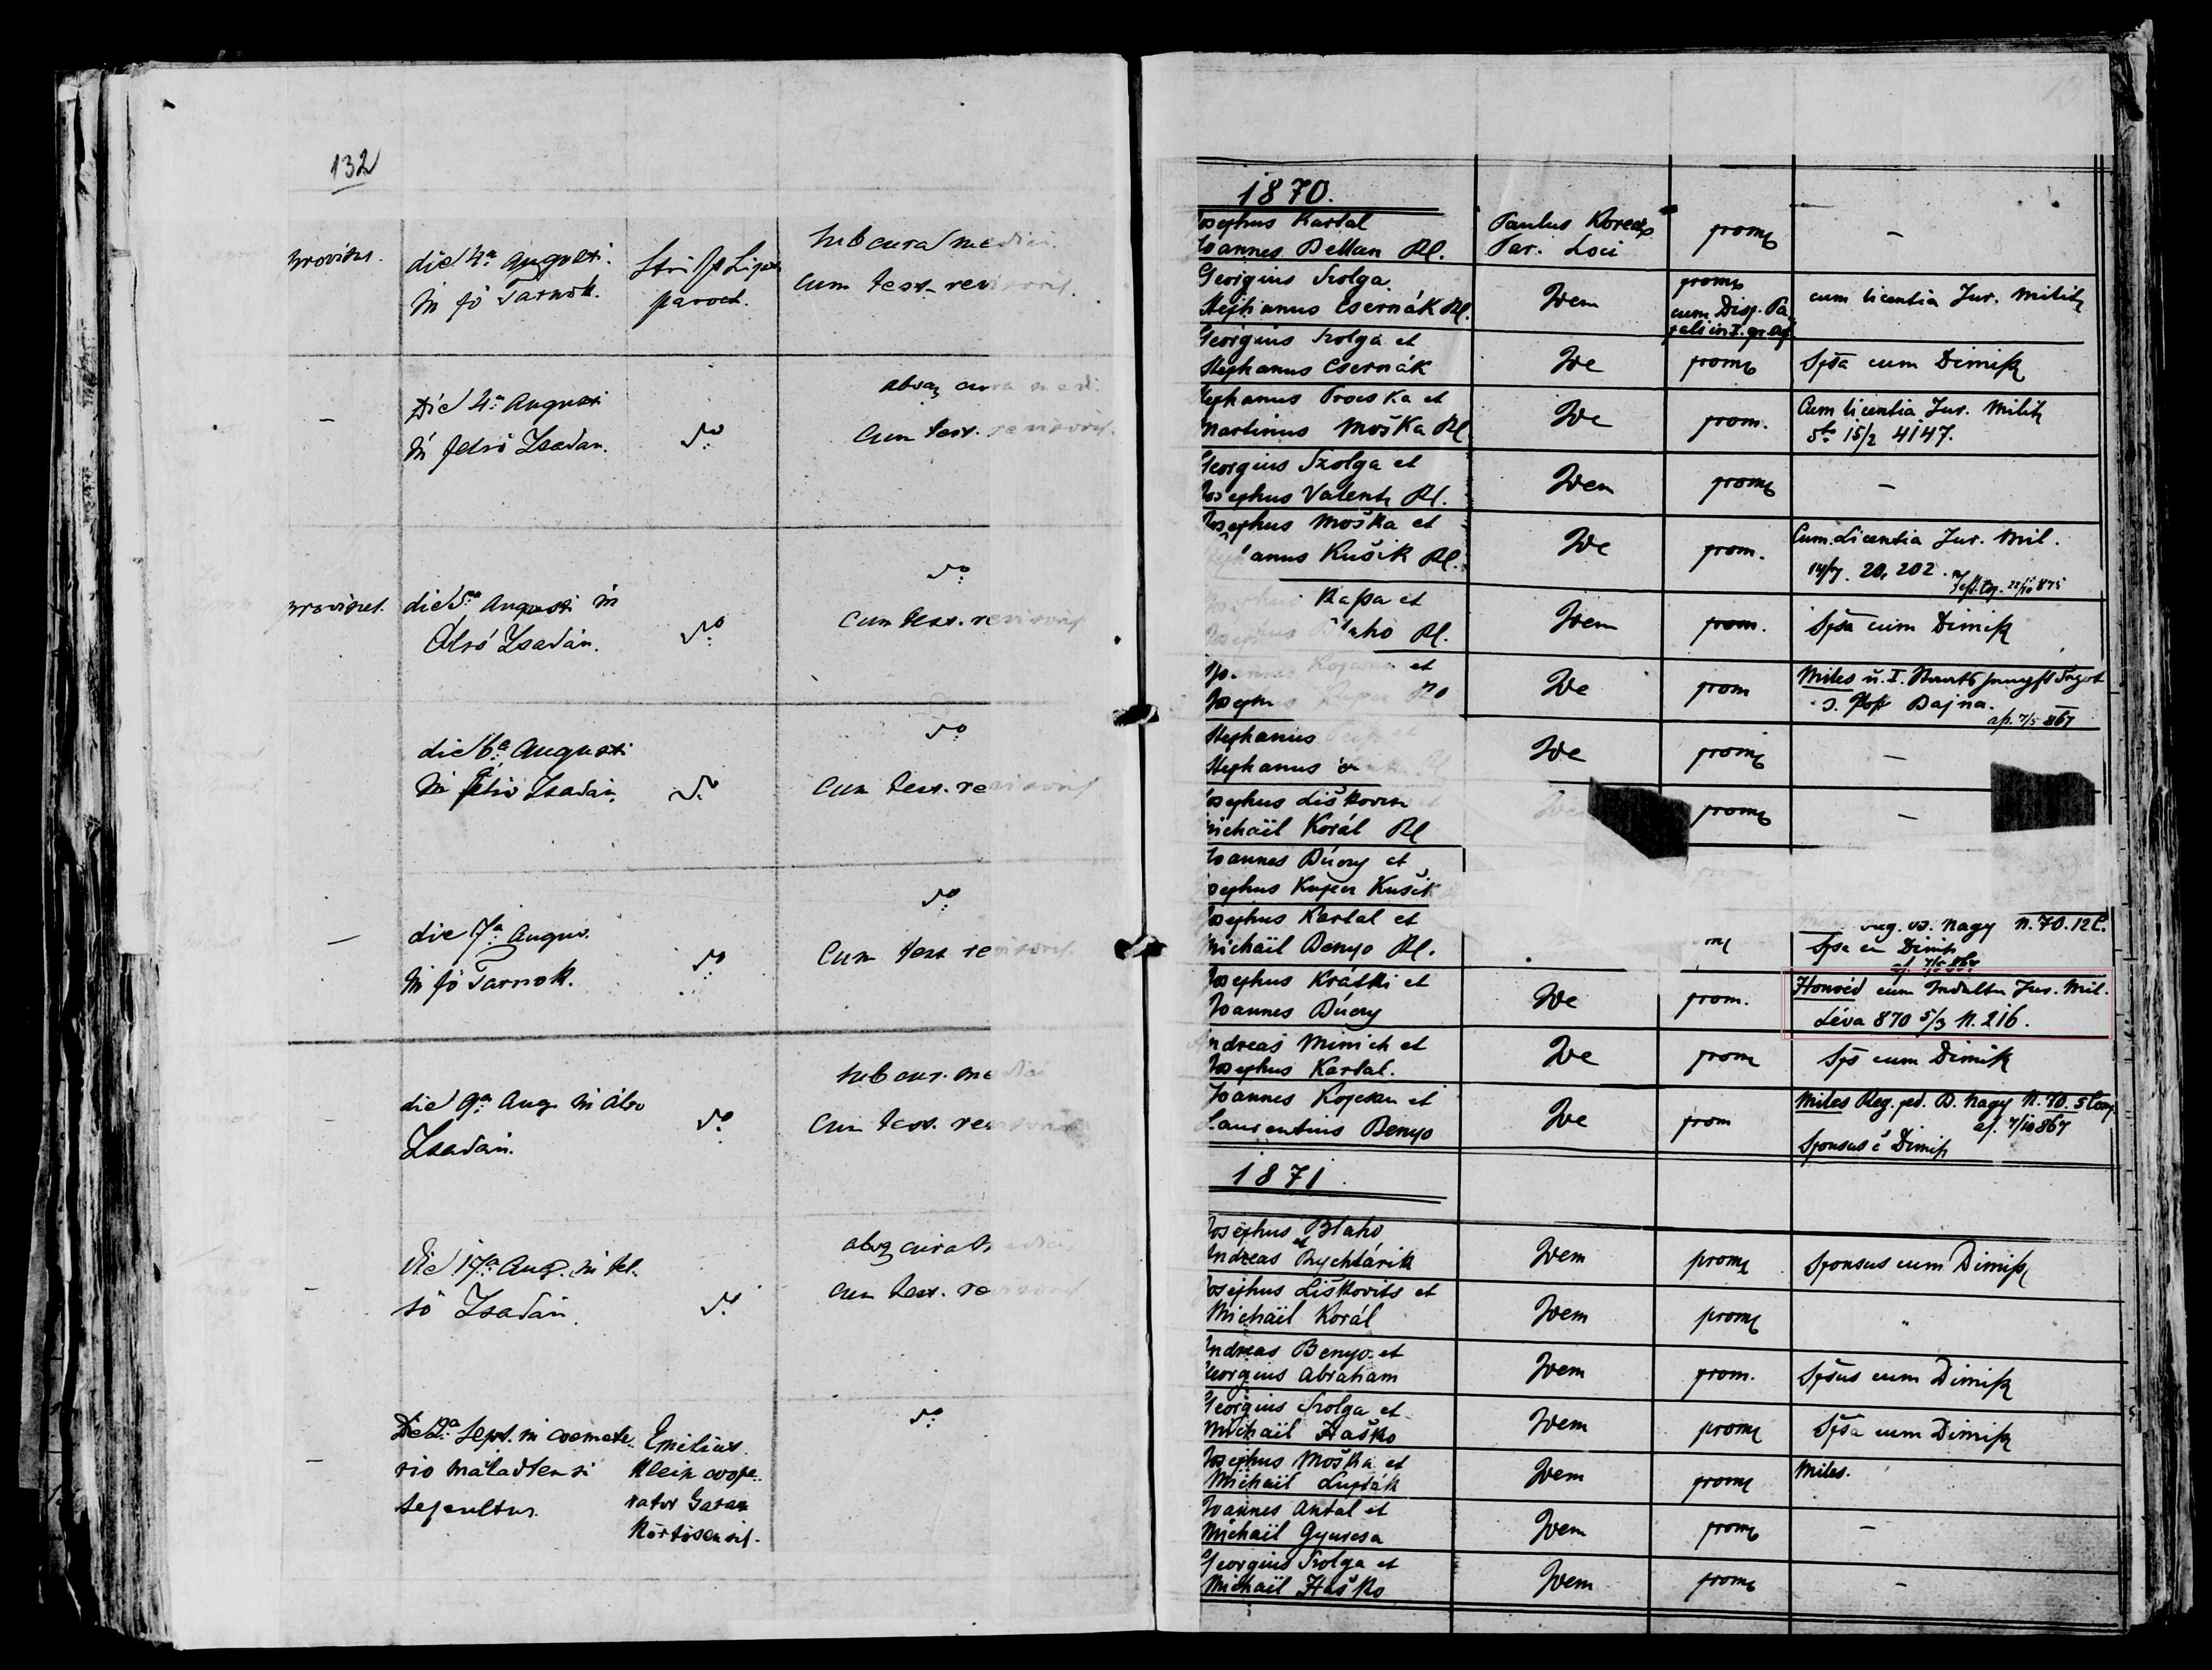 132
provisus.
die 4a Augusti
in fő Tarnok.
paroch.
sub cura medici.
cum test. revisoris.
—
Die 4a Augusti
in felső Zsadan.
do
absq cura medi.
cum test. revisoris.
provisus.
die 5a Augusti in
Alsó Zsadán.
do
do
cum test. revisoris
die 6a Augusti
in felső Zsadán.
do
do
cum test. revisoris
—
die 7a Augus.
in fő Tarnok.
do
do
cum test revisoris.
die 9a Aug. in Alsó
Zsadán.
do
sub cur. medici
cum test. revisoris
—
die 17a Aug. in fel-
ső Zsadán.
do
absq cura medici
cum test. revisoris
—
Die 2a Sept. in coemete-
rio
sepultus.
Emilius
Klein coope-
rator Garam
do
1870.
Josephus Kartal
Joannes Bellan Rl.
Paulus
Par. Loci
prom
—
Georgius Szolga
Stephanus Csernák Rl.
Idem
prom
cum Disp. Pa-
cum licentia Jur. Milit
Georgius Szolga et
Stephanus Csernák
Ide
prom
Spsa cum Dimiss
Stephanus et
Martinus Moška Rl
Ide
prom.
Cum licentia Jur. Milit
15/2 4147.
Georgius Szolga et
Josephus Valent Rl.
Idem
prom
—
Josephus Moška et
Stephanus Kušik Rl.
Ide
prom.
Cum Licentia Jur. Mil.
14/7. 20,202.
Rapa et
Josephus Blaho Rl.
Idem
prom.
Spsa cum Dimiss
Joannes Kopcsan et
Ide
prom
Miles
Bajna.
7/5 867
Stephanus
Stephanus
Ide
prom
—
Josephus Liškovits et
Michaïl Korál Rl
prom
—
Joannes Dúczy et
Josephus Kušik
Josephus Kartal et
Michaïl Benyo Rl.
Nagy N.70.12C.
Spsa cu Dimiss
Josephus Krátki et
Joannes Dúczy
Ide
prom.
Honvéd cum Indultu Jur. Mil.
Léva 870 5/3 N. 216.
Andreas Minich et
Josephus Kartal.
Ide
prom
Sps cum Dimiss
Joannes Kopcsan et
Laurentius Benyo
Ide
prom
Miles Reg. ped. B. Nagy N. 70. 5 Comp
af. 7/10 867
Sponsus c Dimiss
1871
Josephus Blaho
et
Andreas Rychtárik
Idem
prom
Sponsus cum Dimiss
Josephus Liškovits et
Michaïl Korál
Idem
prom
"
Andreas Benyo et
Georgius Abraham
Idem
prom.
Spsus cum Dimiss
Georgius Szolga et
Michaïl Haško
Idem
prom
Spsa cum Dimiss
Josephus Moška et
Michaïl Lupták
Idem
prom
Miles.
Joannes Antal et
Michaïl Gyurcsa
Idem
prom
—
Georgius Szolga et
Michaïl Haško
Idem
prom
—